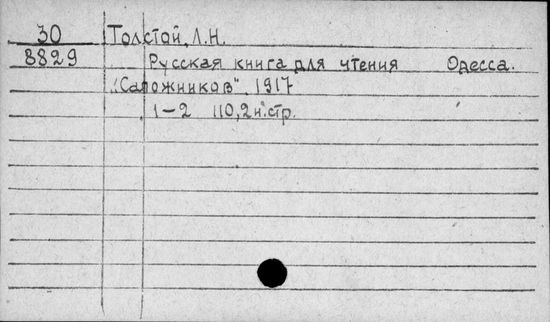 30 Толстой, Л.Н.
8829 Русская книга для чтения Одесса.
„Сапожников", 1917
1-2 110,2н.стр.